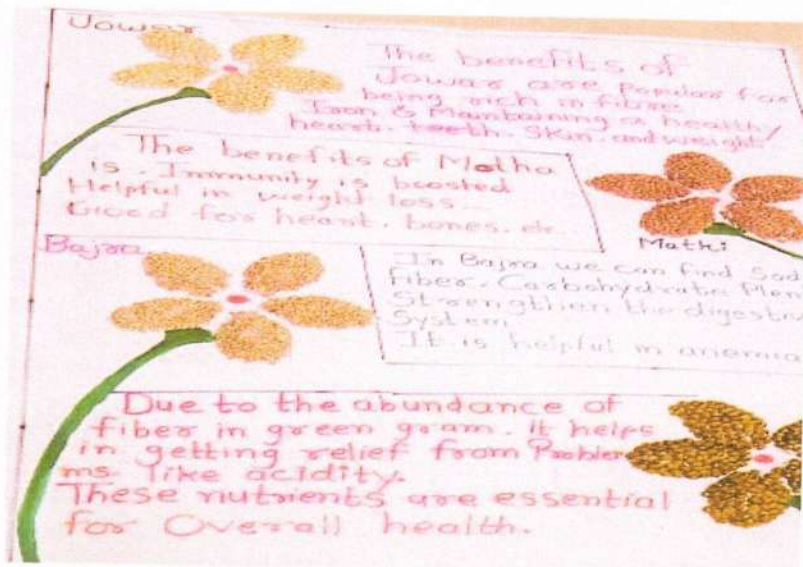 Jowar
The benefits of
Jowar are Popular for
being rich in fibre
Iron & Maintaining a healthy
heart. teeth. Skin. and weight
The benefits of Motha
is. Immunity is boosted
Helpful in weight loss
Good for heart. bones. etc
Mathi
Bajra
In Bajra we can find Sod
Fiber. Carbohydrate Plen
Strengthen the digestiv
System.
It is helpful in anemia
Due to the abundance of
fiber in green gram. it helps
in getting relief from Proble
ms. like acidity.
These nutrients are essential
for Overall health.